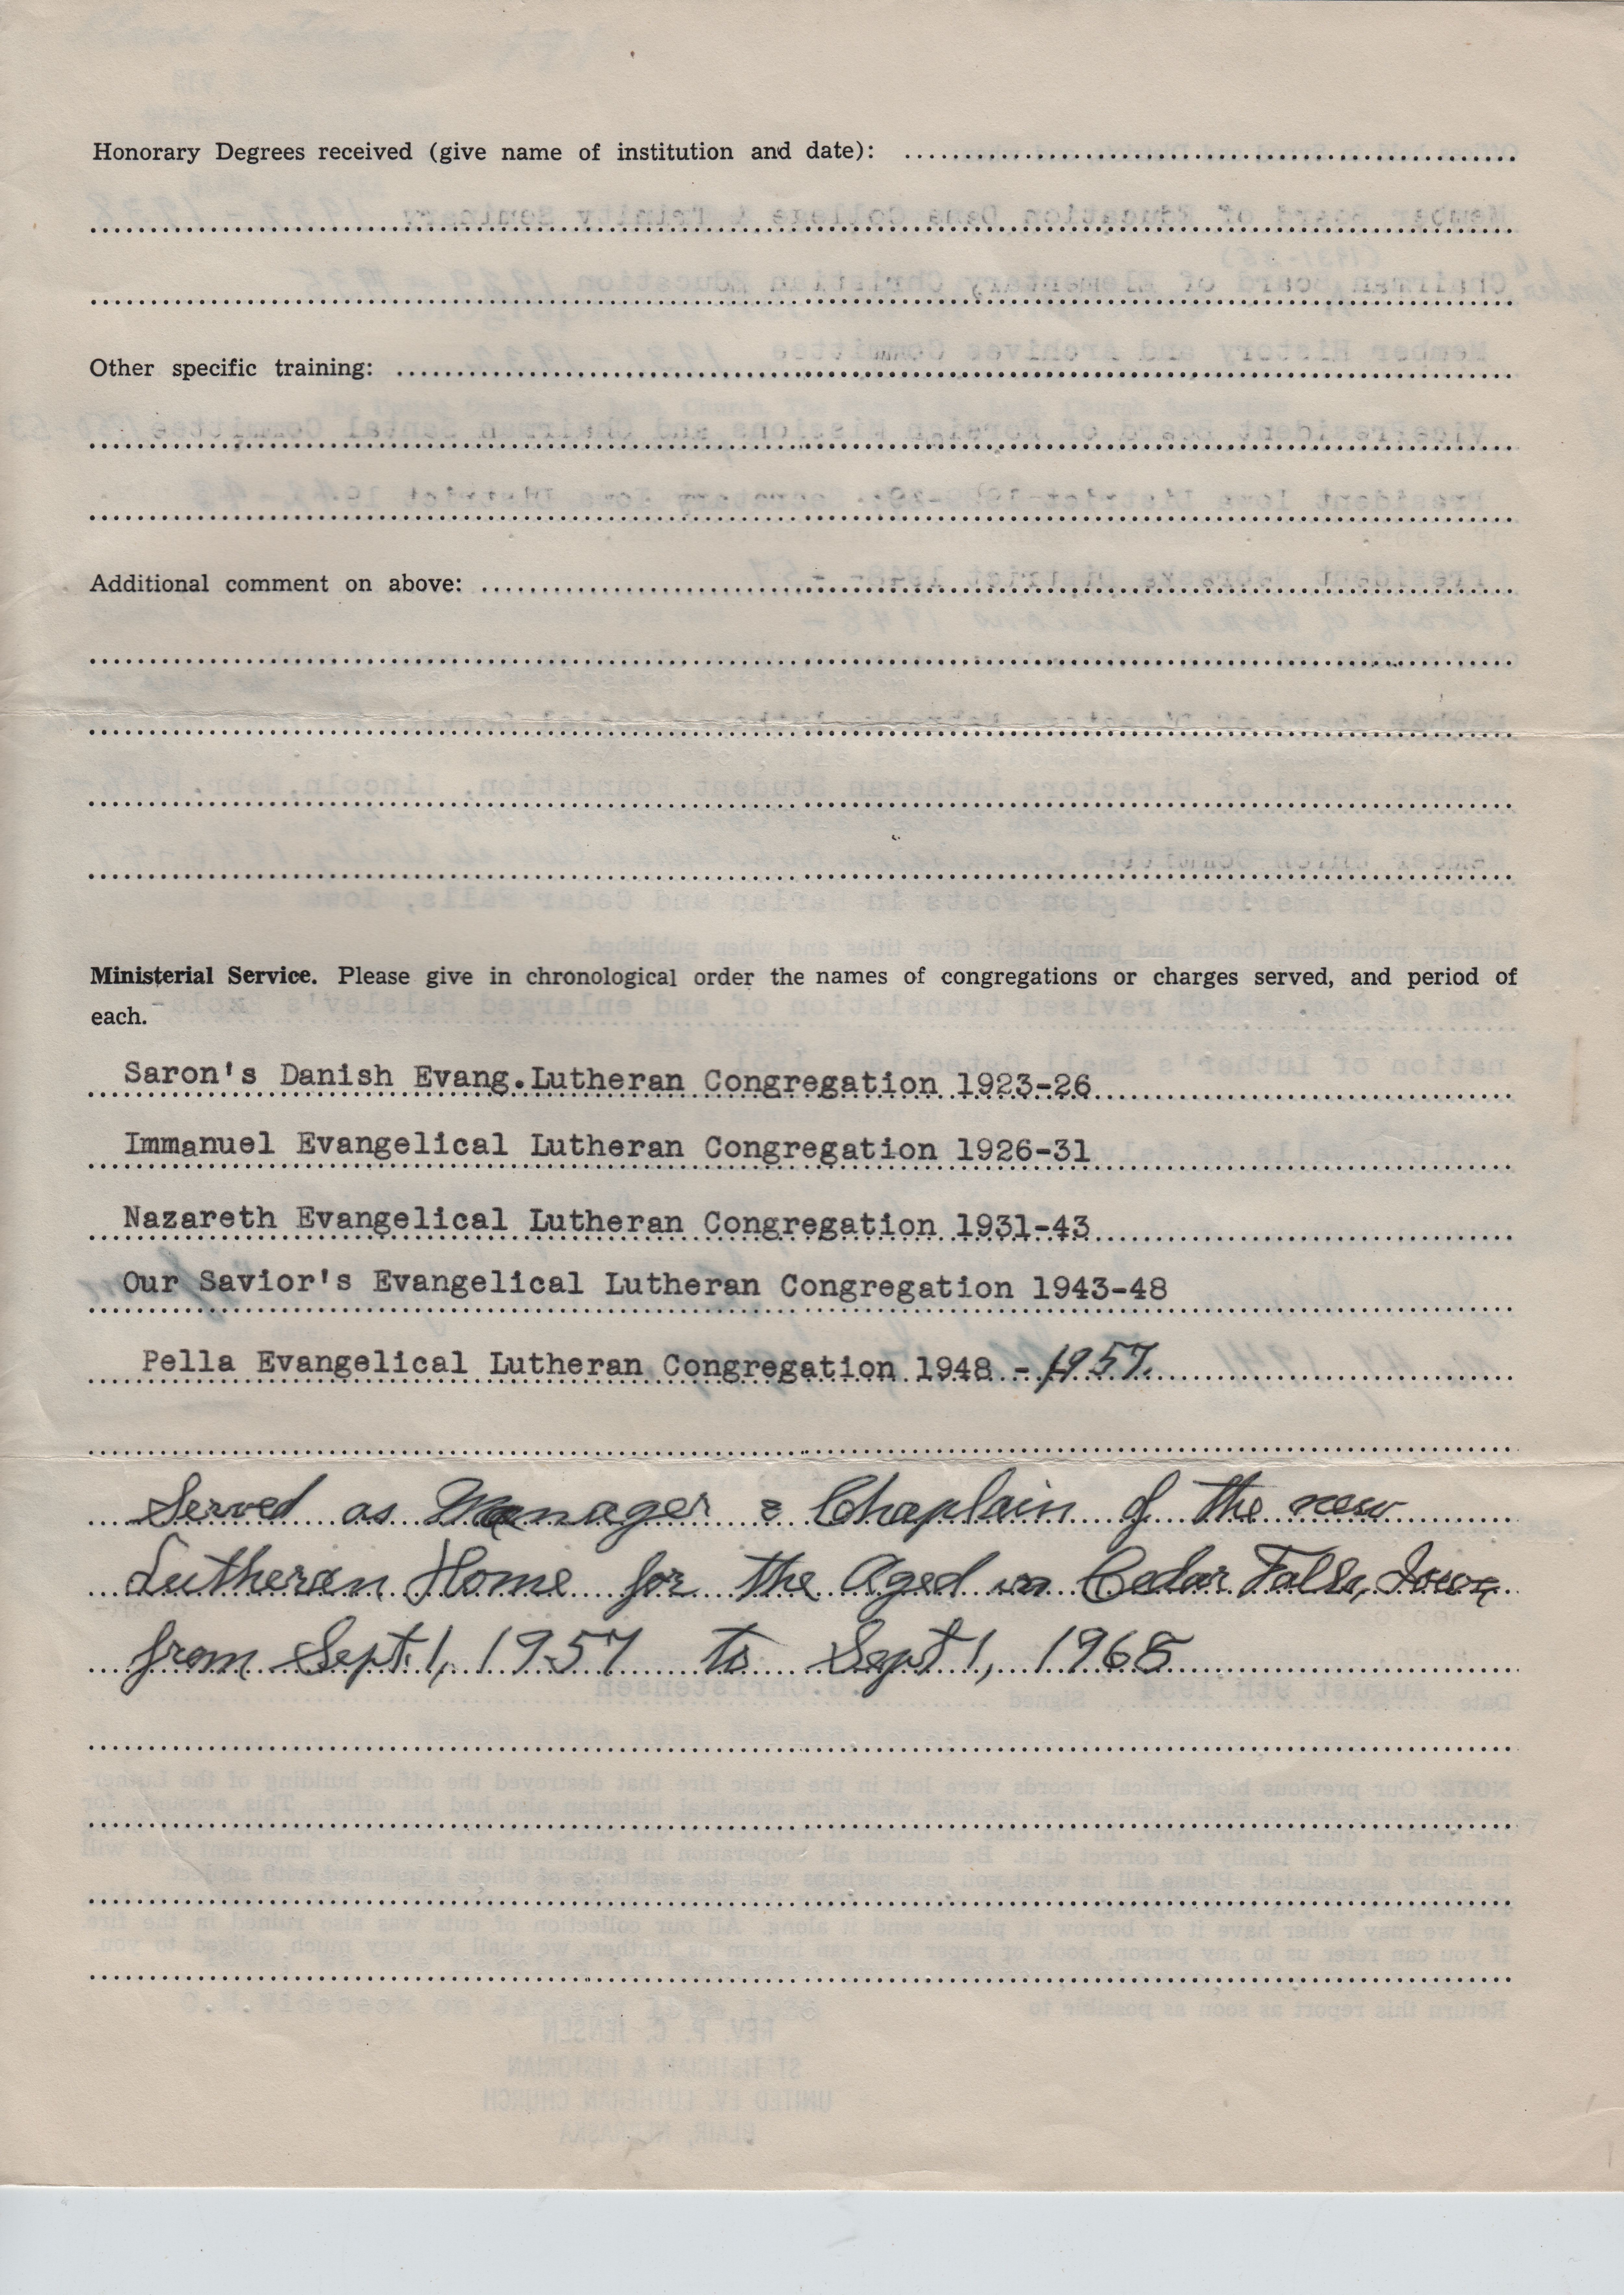 Honorary Degrees received (give name of institution and date):
Other specific training:
Additional comment on above:
Ministerial Service. Please give in chronological order the names of congregations or charges served, and period of
each.
Saron's Danish Evang.Lutheran Congregation 1923-26
Immanuel Evangelical Lutheran Congregation 1926-31
Nazareth Evangelical Lutheran Congregation 1931-43
Our Savior's Evangelical Lutheran Congregation 1943-48
Pella Evangelical Lutheran Congregation 1948 - 1957.
Served as Manager & Chaplain of the new
Lutheran Home for the Aged in Cedar Falls, Iowa
from Sept. 1, 1957 to Sept 1, 1968